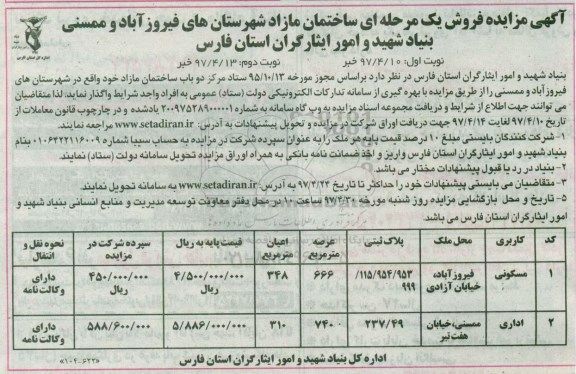 آگهی مزایده فروش یک مرحله ای ساختمان مازاد شهرستان های فیروزآباد و ممسنی
بنیاد شهید و امور ایثارگران استان فارس
نوبت اول: ۹۷/۴/۱۰ خبر
نوبت دوم: ۹۷/۴/۱۳ خبر
بنیاد شهید و امور ایثارگران استان فارس در نظر دارد براساس مجوز مورخه ۹۵/۱۰/۱۳ ستاد مرکز دو باب ساختمان مازاد خود واقع در شهرستان های
فیروزآباد و ممسنی را از طریق مزایده با بهره گیری از سامانه تدارکات الکترونیکی دولت (ستاد) عمومی به افراد واجد شرایط واگذار نماید، لذا متقاضیان
می توانند جهت اطلاع از شرایط و دریافت مجموعه اسناد مزایده به وب گاه سامانه به شماره ۲۰۰۹۷۵۲۸۹۰۰۰۰۰۱ یادشده و در چارچوب قانون معاملات از
تاریخ ۹۷/۴/۱۰ لغایت ۹۷/۴/۱۴ جهت دریافت اوراق شرکت در مزایده و تحویل پیشنهادات به آدرس: www.setadiran.ir مراجعه نمایند.
۱- شرکت کنندگان بایستی مبلغ ۱۰ درصد قیمت پایه هر ملک را به عنوان سپرده شرکت در مزایده به حساب سیبا شماره ۰۱۰۶۴۲۲۱۱۶۰۰۹ بنام
بنیاد شهید و امور ایثارگران استان فارس واریز و اخذ ضمانت نامه بانکی به همراه اوراق مزایده تحویل سامانه دولت (ستاد) نمایند.
۲- بنیاد در رد یا قبول پیشنهادات مختار می باشد.
۳- متقاضیان می بایستی پیشنهادات خود را حداکثر تا تاریخ ۹۷/۴/۲۴ به آدرس: www.setadiran.ir به سامانه تحویل نمایند.
۵- تاریخ و محل بازگشایی مزایده روز شنبه مورخه ۹۷/۴/۳۰ ساعت ۱۰ در محل دفتر معاونت توسعه مدیریت و منابع انسانی بنیاد شهید و
امور ایثارگران استان فارس می باشد.
کد کاربری محل ملک پلاک ثبتی عرصه مترمربع اعیان مترمربع قیمت پایه به ریال سپرده شرکت در مزایده نحوه نقل و انتقال
۱ مسکونی فیروزآباد، خیابان آزادی ۱۱۵/۹۵۴/۹۵۳/ ۹۹۹ ۶۶۶ ۳۴۸ ۴/۵۰۰/۰۰۰/۰۰۰ ریال ۴۵۰/۰۰۰/۰۰۰ ریال دارای وکالت نامه
۲ اداری ممسنی، خیابان هفت تیر ۲۳۷/۴۹ ۷۴۰ ۳۱۰ ۵/۸۸۶/۰۰۰/۰۰۰ ۵۸۸/۶۰۰/۰۰۰ دارای وکالت نامه
اداره کل بنیاد شهید و امور ایثارگران استان فارس
«۱۰۴-۶۲۲»